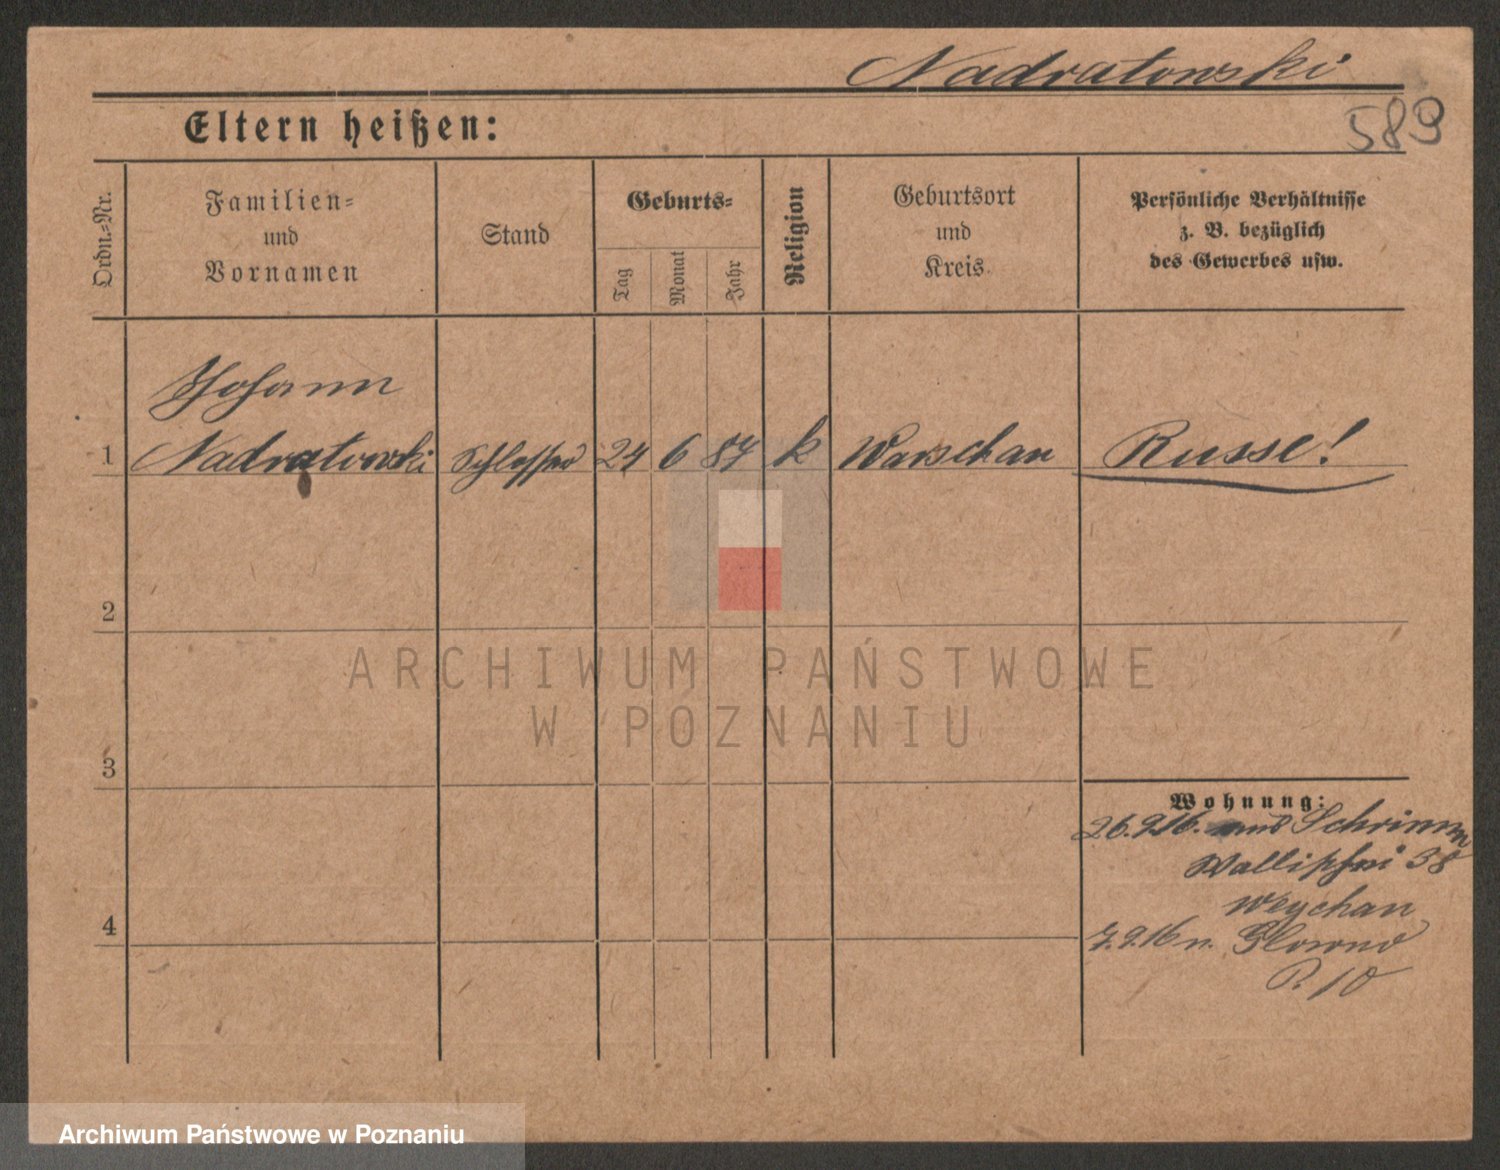 Nadratowski
589
Eltern heißen:
Ordn.-Nr.
Familien-
und
Vornamen
Stand
Geburts-
Tag
Monat
Jahr
Religion
Geburtsort
und
Kreis
Persönliche Verhältnisse
z. B. bezüglich
des Gewerbes usw.
Johann
1 Nadratowski Schlosser 24 6 87 k Warschau Russe!
2
ARCHIWUM PAŃSTWOWE
W POZNANIU
3
Wohnung:
26.9.16. Schrimm
Wallischei 38
4
7.9.16 n. Glowno
P. 10
Archiwum Państwowe w Poznaniu